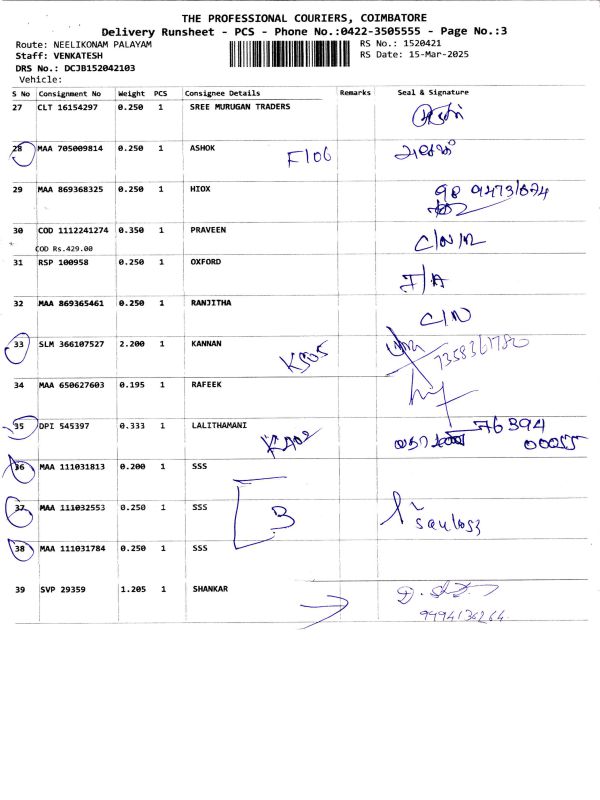 THE PROFESSIONAL COURIERS, COIMBATORE
Delivery Runsheet - PCS - Phone No.:0422-3505555 - Page No.:3
Route: NEELIKONAM PALAYAM
RS No.: 1520421
Staff: VENKATESH
RS Date: 15-Mar-2025
DRS No.: DCJB152042103
Vehicle:
S No Consignment No Weight PCS Consignee Details Remarks Seal & Signature
27 CLT 16154297 0.250 1 SREE MURUGAN TRADERS
28 MAA 705009814 0.250 1 ASHOK F106
29 MAA 869368325 0.250 1 HIOX
30 COD 1112241274 0.350 1 PRAVEEN
COD Rs.429.00
31 RSP 100958 0.250 1 OXFORD
32 MAA 869365461 0.250 1 RANJITHA C/N
33 SLM 366107527 2.200 1 KANNAN 7358361780
34 MAA 650627603 0.195 1 RAFEEK
35 DPI 545397 0.333 1 LALITHAMANI KA02 76394
00055
36 MAA 111031813 0.200 1 SSS
37 MAA 111032553 0.250 1 SSS B
38 MAA 111031784 0.250 1 SSS
39 SVP 29359 1.205 1 SHANKAR
9994136264